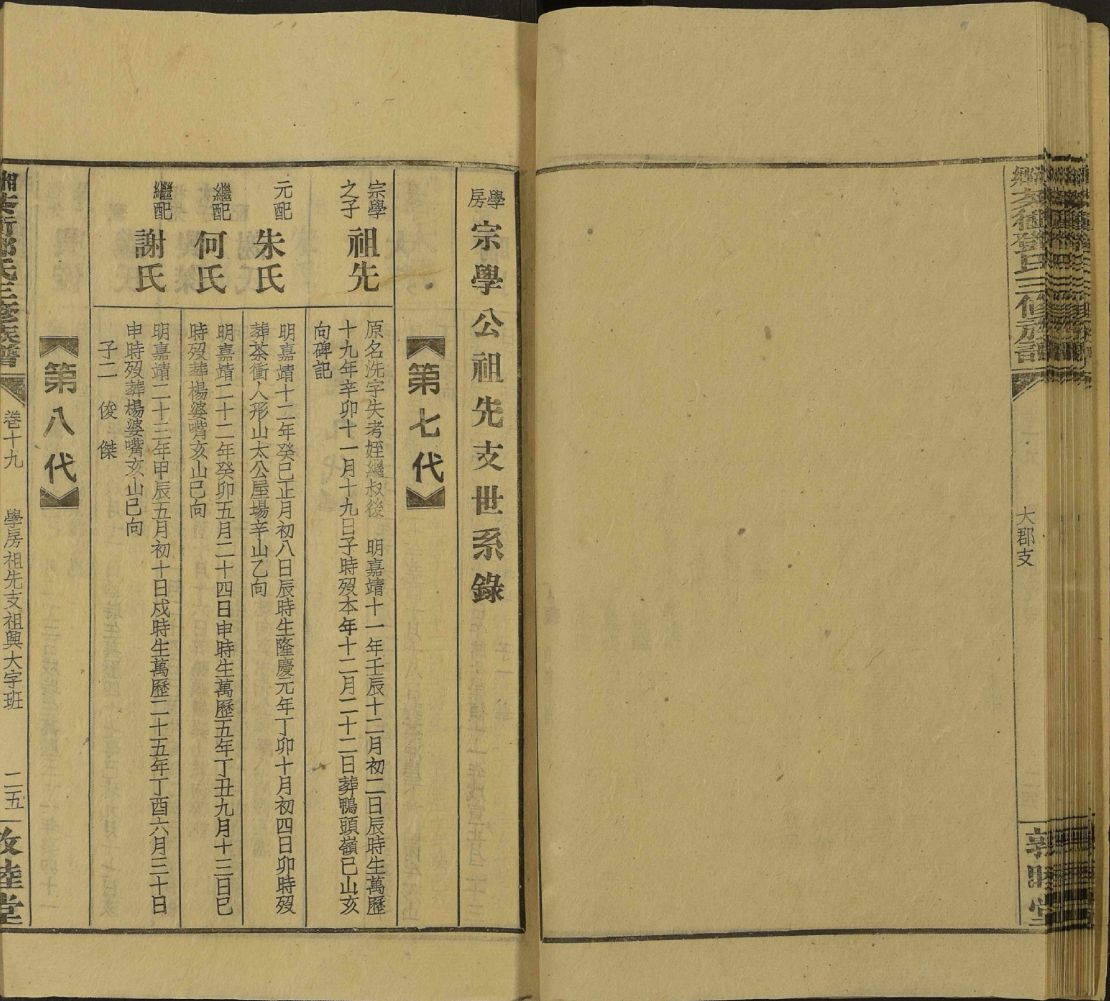 大郡支
學房
宗學公祖先支世系錄
第七代
宗學
之子
祖先
原名洗字失考姪繼叔後 明嘉靖十一年壬辰十二月初二日辰時生萬歷
十九年辛卯十一月十九日子時歿本年十二月二十二日葬鴨頭嶺巳山亥
向碑記
元配
朱氏
明嘉靖十二年癸巳正月初八日辰時生隆慶元年丁卯十月初四日卯時歿
葬茶衝人形山太公屋場辛山乙向
繼配
何氏
明嘉靖二十二年癸卯五月二十四日申時生萬歷五年丁丑九月十三日巳
時歿葬楊婆嘴亥山巳向
繼配
謝氏
明嘉靖二十三年甲辰五月初十日戍時生萬歷二十五年丁酉六月三十日
申時歿葬楊婆嘴亥山巳向
子二 俊 傑
第八代
氏三修族譜
卷十九
學房祖先支祖興大字班
二五
敦睦堂